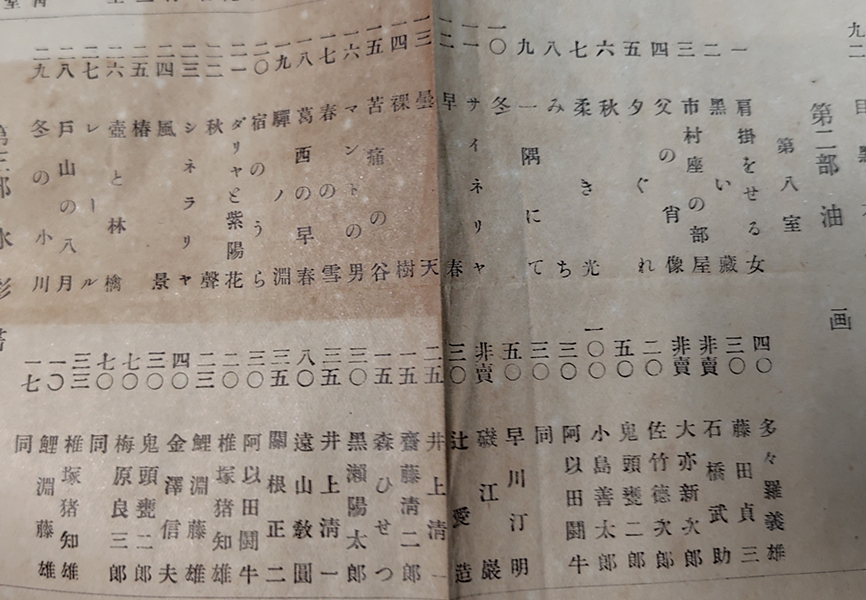 九二
第二部 油 画
第八室
一 肩掛をせる女 四〇 多々羅義雄
二 黒い藏 三〇 藤田貞三
三 市村座の部屋 非賣 石橋武助
四 父の肖像 非賣 大亦新次郎
五 夕ぐれ 二〇 佐竹德次郎
六 秋 五〇 鬼頭甕二郎
七 柔き光 一〇〇 小島善太郎
八 みち 三〇 阿以田鬪牛
九 一隅にて 三〇 同
一〇 冬 五〇 早川汀明
一一 サイネリヤ 非賣 磯江巖
一二 早春 三〇 辻愛造
一三 曇天 二五 井上清一
一四 裸樹 一五 齋藤清二郎
一五 苦痛の谷 一五 森ひせつ
一六 マントの男 三〇 黒瀬陽太郎
一七 春の雪 三五 井上清一
一八 葛西の早春 八〇 遠山敎圓
一九 驛ノ淵 三五 關根正二
二〇 宿のうら 三〇 阿以田鬪牛
二一 ダリヤと紫陽花 二〇 椎塚猪知雄
二二 秋聲 二三 鯉淵藤雄
二三 シネラリヤ 四〇 金澤信夫
二四 風景 三〇 鬼頭甕二郎
二五 椿 七〇 梅原良三郎
二六 壺と林檎 七〇 同
二七 レール 三三 椎塚猪知雄
二八 戸山の八月 一〇 鯉淵藤雄
二九 冬の小川 一七 同
第三部 水彩